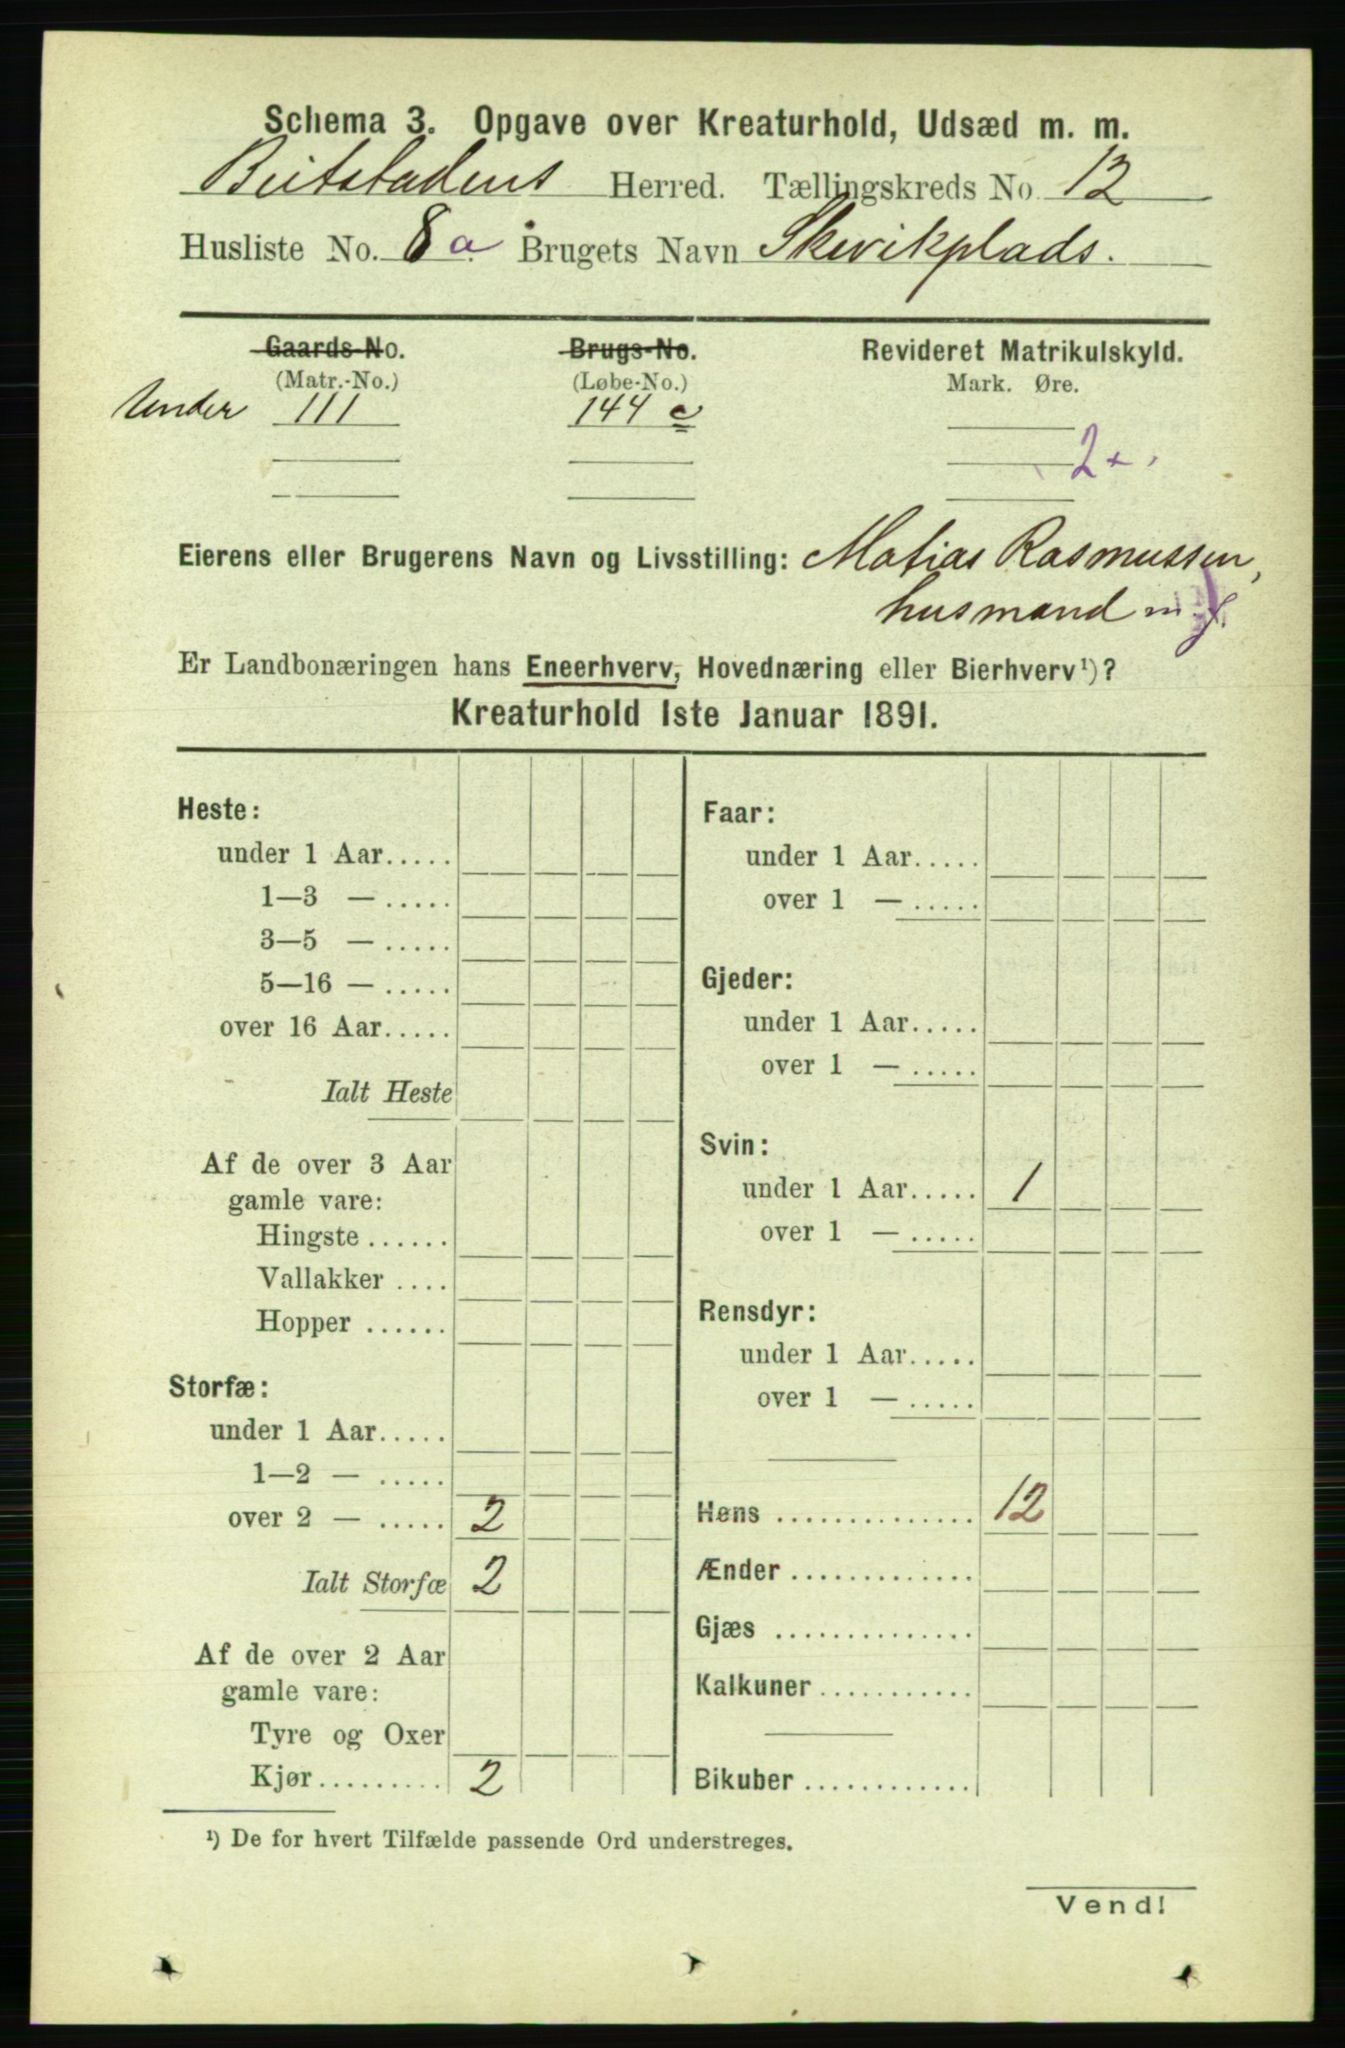 Schema 3. Opgave over Kreaturhold, Udsæd m. m.
Beitstadens Herred. Tællingskreds No. 12
Husliste No. 8 a Brugets Navn Skevikplads.
Gaards-No. Brugs-No. Revideret Matrikulskyld.
(Matr.-No.) (Løbe-No.) Mark. Øre.
Under 111 144 c
2
Eierens eller Brugerens Navn og Livsstilling: Matias Rasmussen,
husmand m. j.
Er Landbonæringen hans Eneerhverv, Hovednæring eller Bierhverv¹)?
Kreaturhold 1ste Januar 1891.
Heste:
under 1 Aar.....
1—3 — .....
3—5 — .....
5—16 — .....
over 16 Aar.....
Ialt Heste
Af de over 3 Aar
gamle vare:
Hingste ......
Vallakker ....
Hopper ......
Storfæ:
under 1 Aar.....
1—2 — .....
over 2 — ..... 2
Ialt Storfæ 2
Af de over 2 Aar
gamle vare:
Tyre og Oxer
Kjør......... 2
Faar:
under 1 Aar.....
over 1 — .....
Gjeder:
under 1 Aar.....
over 1 — .....
Svin:
under 1 Aar..... 1
over 1 — .....
Rensdyr:
under 1 Aar.....
over 1 — .....
Høns .............. 12
Ænder .............
Gjæs ..............
Kalkuner...........
Bikuber ............
¹) De for hvert Tilfælde passende Ord understreges.
Vend!